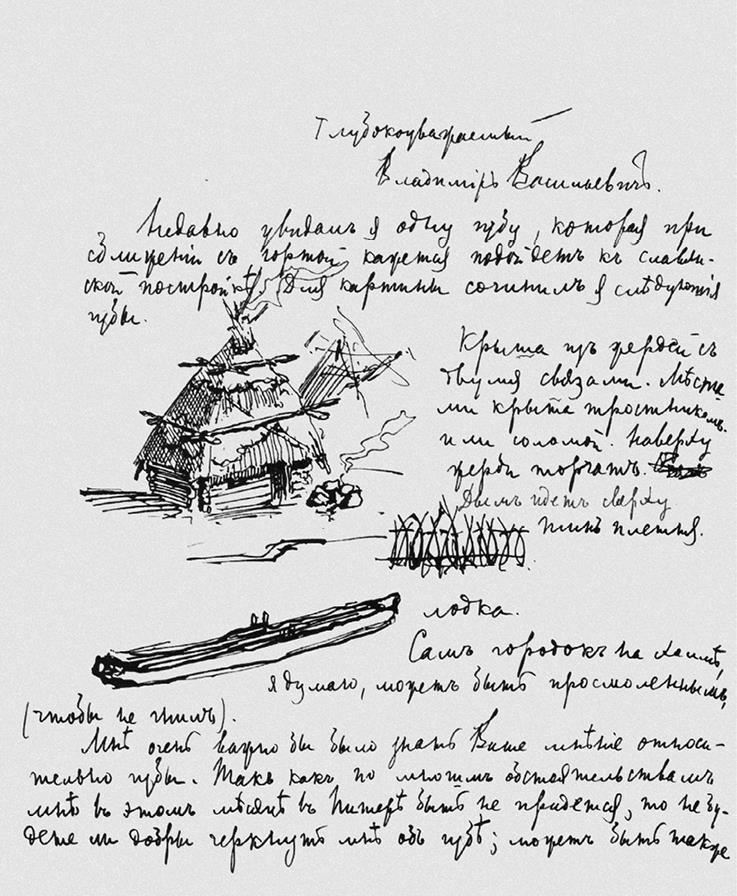 Глубокоуважаемый
Владимiръ Васильевичъ.
Недавно увидалъ я одну избу, которая при
сближенiи съ юртой кажется подойдетъ къ славян-
ской постройкѣ. Для картины сочинилъ я слѣдующiя
избы.
Крыша изъ жердей съ
двумя связами. Мѣста-
ми крыта тростникомъ
или соломой. Наверху
жерди торчатъ.
Дымъ идетъ сверху
типъ плетня.
лодка.
Самъ городокъ на холмѣ,
я думаю, можетъ быть просмоленнымъ,
(чтобы не гнилъ).
Мнѣ очень важно бы было знать Ваше мнѣнiе относи-
тельно избы. Такъ какъ по многимъ обстоятельствамъ
мнѣ въ этомъ мѣсяцѣ въ Питерѣ быть не придется, то не бу-
дете ли добры черкнуть мнѣ объ избѣ; можетъ быть также